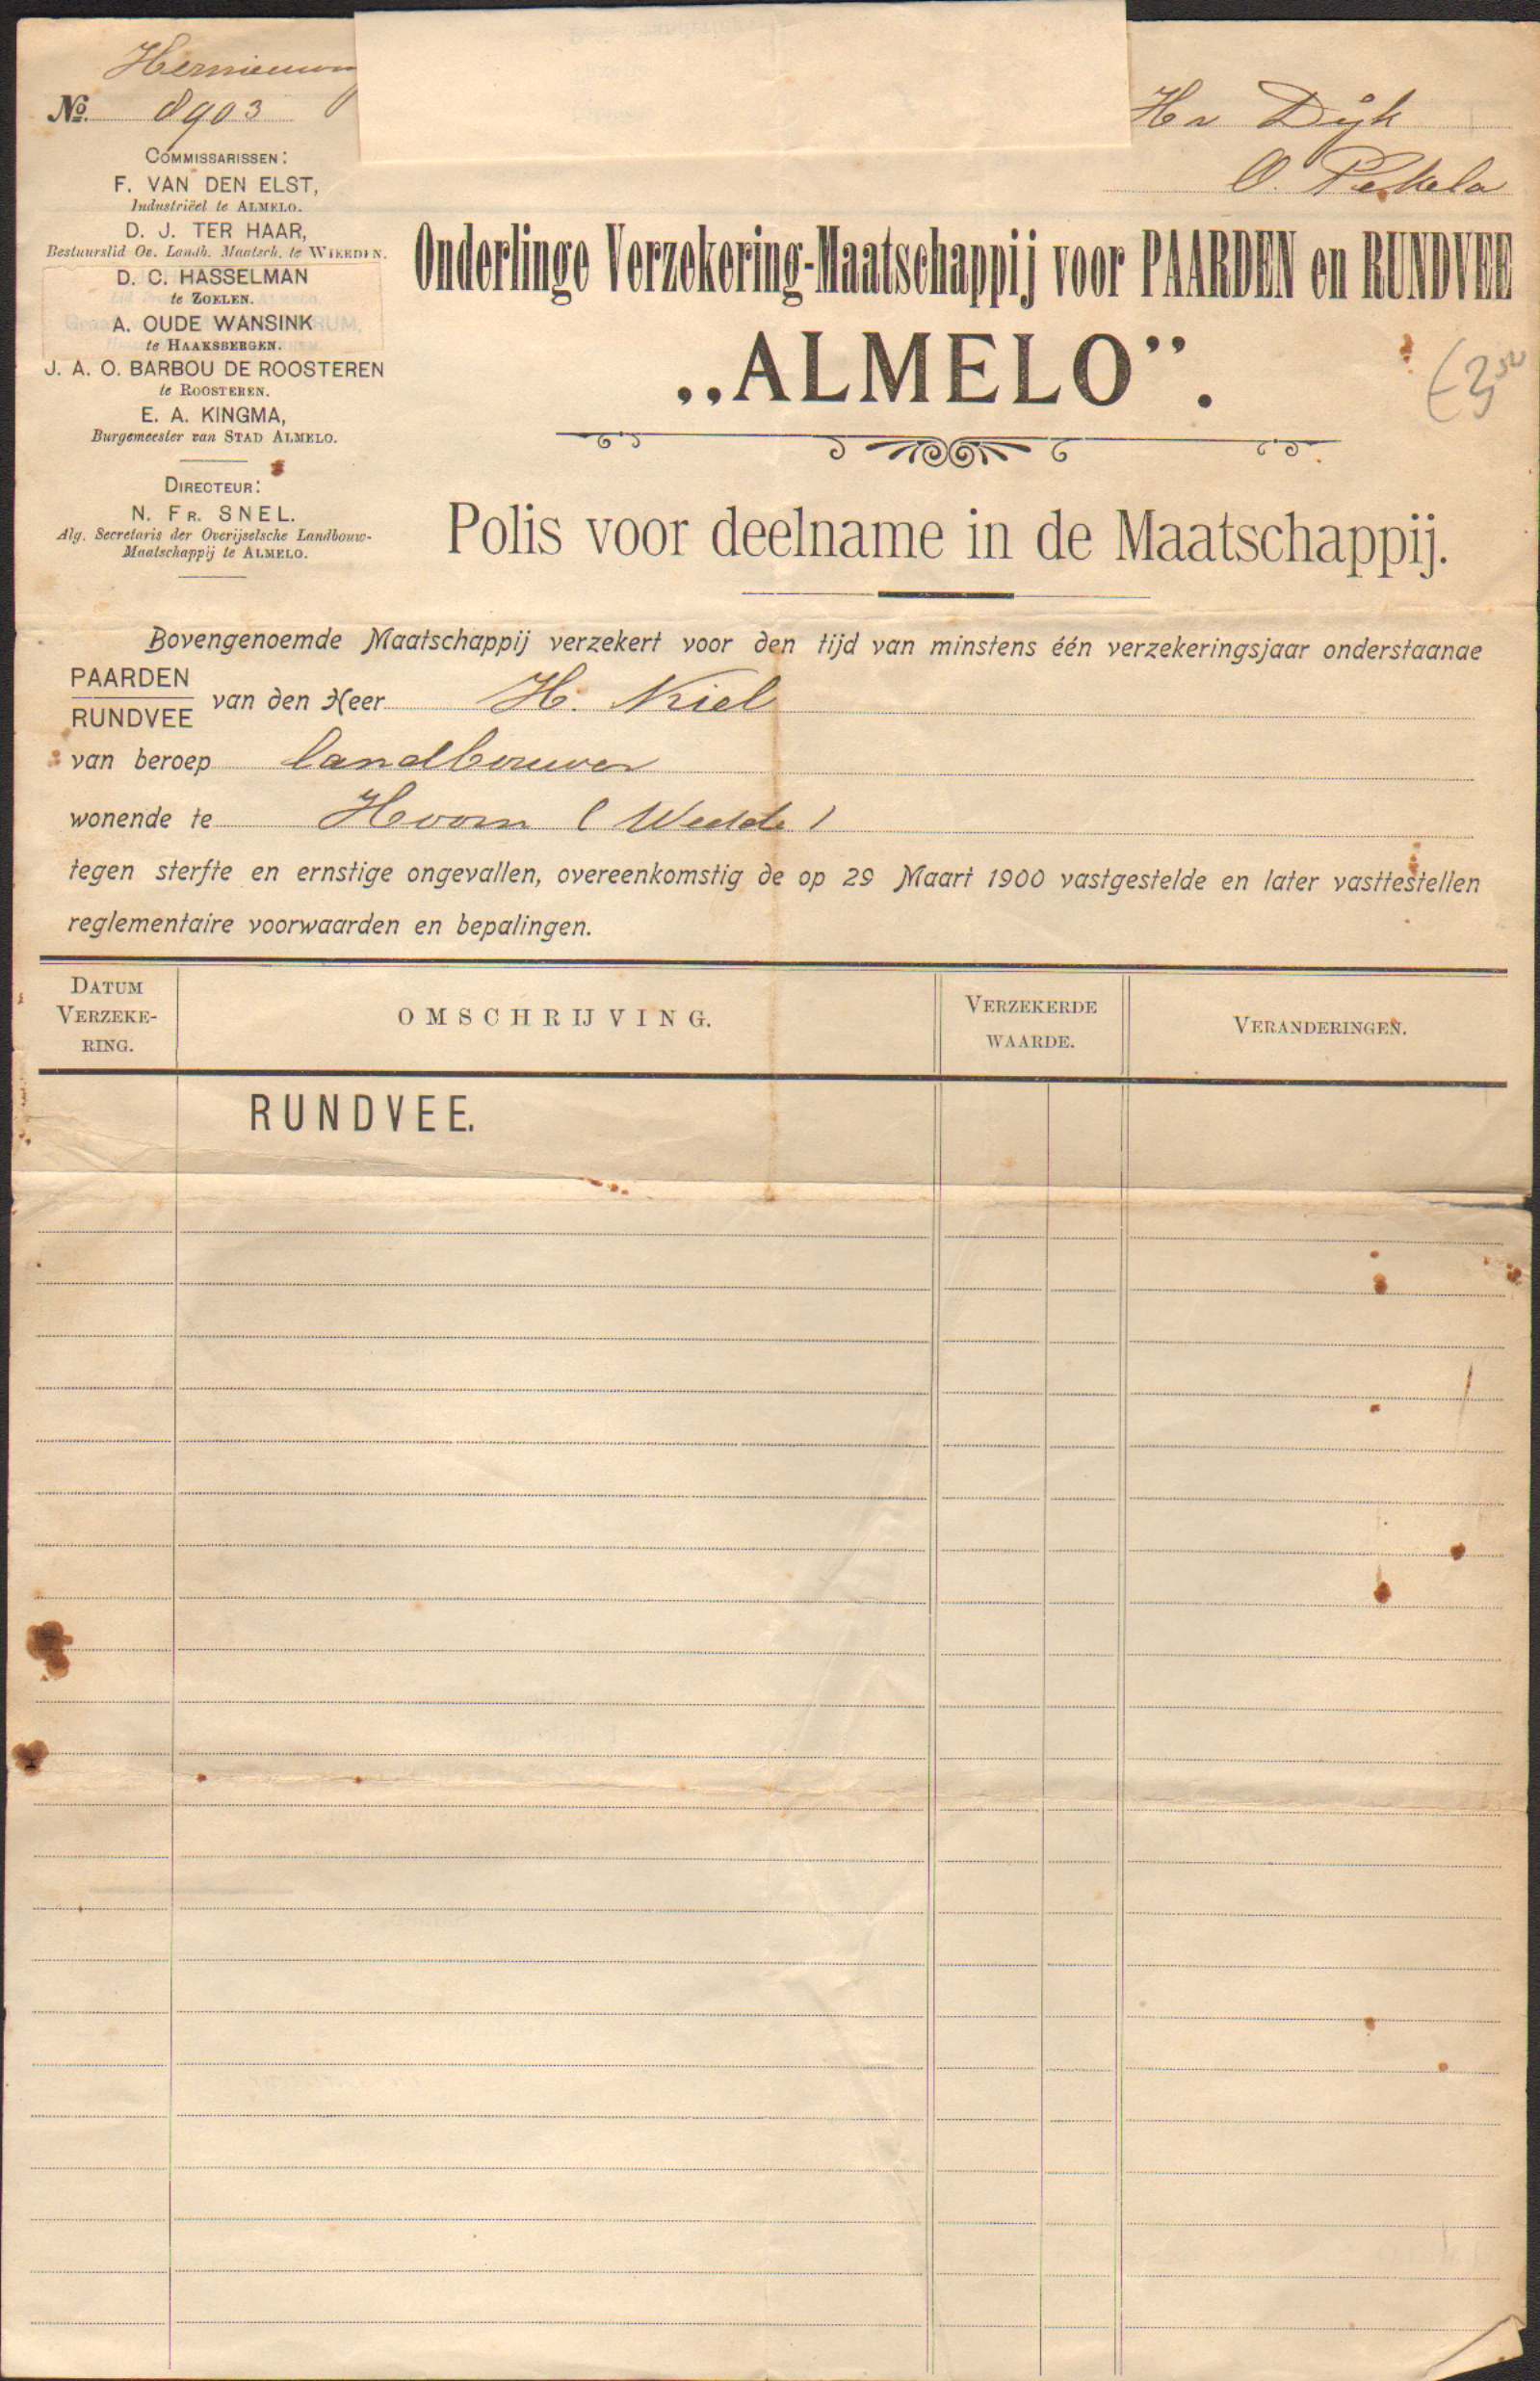 Hernieuw
No. 8903
Hr Dijk
O. Pekela
COMMISSARISSEN:
F. VAN DEN ELST,
Industriëel te ALMELO.
D. J. TER HAAR,
Bestuurslid Ov. Landb. Maatsch. te WIERDEN.
D. C. HASSELMAN
te ZOELEN.
A. OUDE WANSINK
te HAAKSBERGEN.
J. A. O. BARBOU DE ROOSTEREN
te ROOSTEREN.
E. A. KINGMA,
Burgemeester van STAD ALMELO.
DIRECTEUR:
N. FR. SNEL.
Alg. Secretaris der Overijselsche Landbouw-
Maatschappij te ALMELO.
Onderlinge Verzekering-Maatschappij voor PAARDEN en RUNDVEE
„ALMELO”.
Polis voor deelname in de Maatschappij.
Bovengenoemde Maatschappij verzekert voor den tijd van minstens één verzekeringsjaar onderstaande
PAARDEN
RUNDVEE
van den Heer H. Kiel
van beroep landbouwer
wonende te Hoorn (Wedde)
tegen sterfte en ernstige ongevallen, overeenkomstig de op 29 Maart 1900 vastgestelde en later vasttestellen
reglementaire voorwaarden en bepalingen.
DATUM
VERZEKE-
RING.
OMSCHRIJVING.
VERZEKERDE
WAARDE.
VERANDERINGEN.
RUNDVEE.